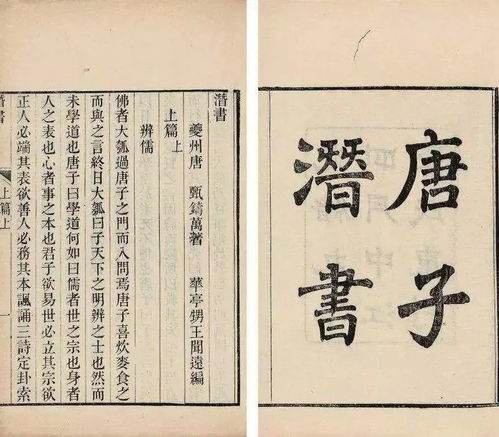 唐子
潛書
潛書
夔州唐　甄鑄萬著　華亭甥王聞遠編
上篇上
辨儒
佛者大瓠過唐子之門而入問焉唐子喜炊麥食之
而與之言終日大瓠曰子天下之明辨之士也然而
未學道也唐子曰學道何如曰儒者世之宗也身者
人之表也心者事之本也君子欲易世必立其宗欲
正人必端其表欲善人必務其本諷誦三詩定卦索
潛書
上篇上